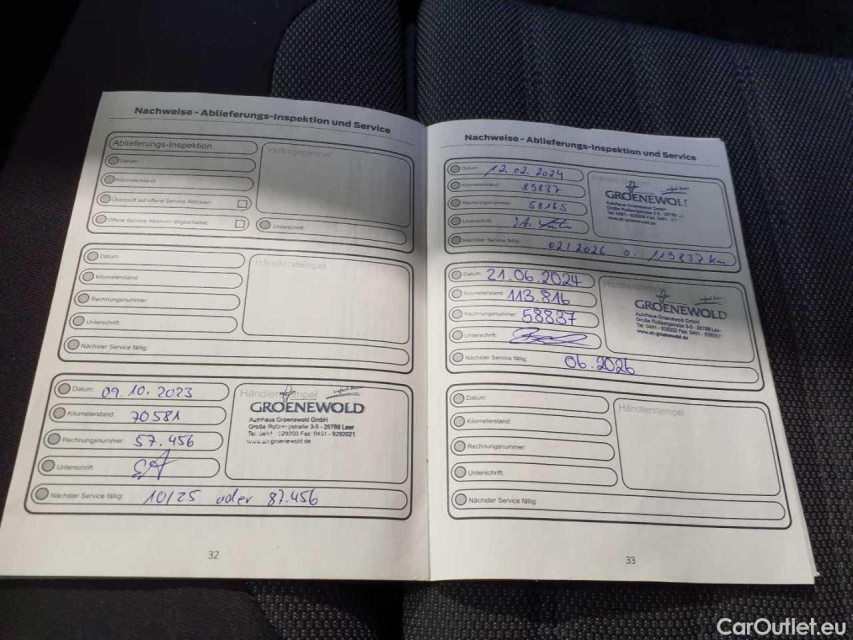 Nachweise - Ablieferungs-Inspektion und Service
Ablieferungs-Inspektion
Datum:
Kilometerstand:
Überprüft auf offene Service Aktionen:
Offene Service Aktionen abgearbeitet:
Unterschrift:
Datum:
Kilometerstand:
Rechnungsnummer:
Unterschrift:
Nächster Service fällig:
Händlerstempel
Datum: 09.10.2023
Kilometerstand: 70581
Rechnungsnummer: 57.456
Unterschrift:
Nächster Service fällig: 10/25 oder 87.456
Händlerstempel
GROENEWOLD
Autohaus Groenewold GmbH
Große Roßbergstraße 3-5 - 26789 Leer
Tel. 0491 - 929200 Fax: 0491 - 9292021
www.ah-groenewold.de
32
Nachweise - Ablieferungs-Inspektion und Service
Datum: 12.02.2024
Kilometerstand: 83837
Rechnungsnummer: 58165
Unterschrift:
Nächster Service fällig: 02/2026 o. 113837 km
GROENEWOLD
Autohaus Groenewold GmbH
Große Roßbergstraße 3-5 - 26789
www.ah-groenewold.de
Datum: 21.06.2024
Kilometerstand: 113.816
Rechnungsnummer: 58837
Unterschrift:
Nächster Service fällig: 06.2026
GROENEWOLD
Autohaus Groenewold GmbH
Große Roßbergstraße 3-5 - 26789 Leer
www.ah-groenewold.de
Datum:
Kilometerstand:
Rechnungsnummer:
Unterschrift:
Nächster Service fällig:
Händlerstempel
33
CarOutlet.eu